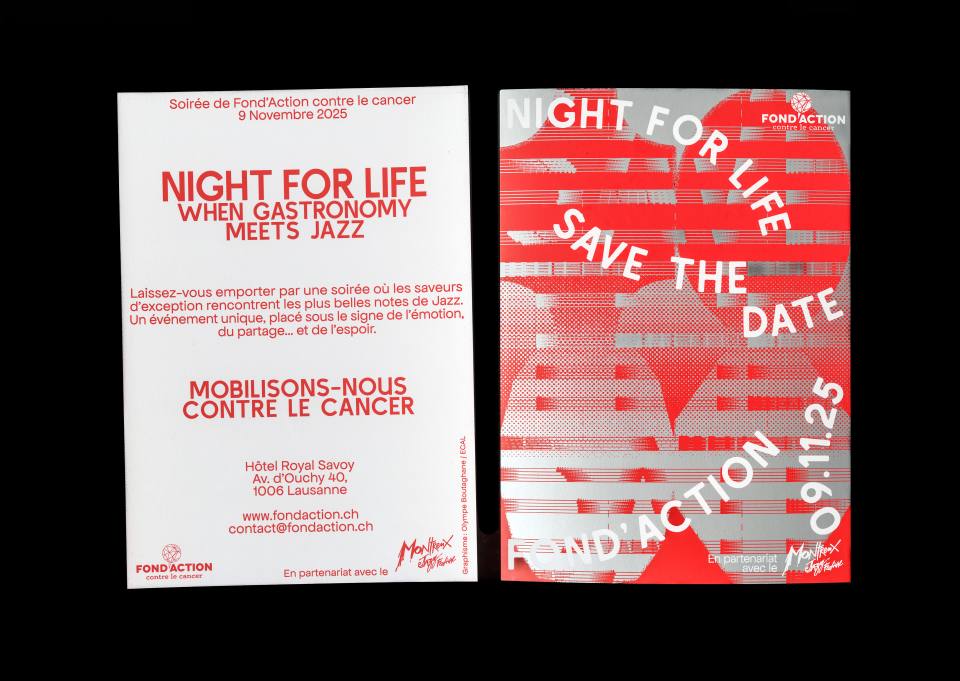 Soirée de Fond'Action contre le cancer
9 Novembre 2025
NIGHT FOR LIFE
WHEN GASTRONOMY
MEETS JAZZ
Laissez-vous emporter par une soirée où les saveurs
d'exception rencontrent les plus belles notes de Jazz.
Un événement unique, placé sous le signe de l'émotion,
du partage... et de l'espoir.
MOBILISONS-NOUS
CONTRE LE CANCER
Hôtel Royal Savoy
Av. d'Ouchy 40,
1006 Lausanne
www.fondaction.ch
contact@fondaction.ch
FOND'ACTION
contre le cancer
En partenariat avec le
Montreux
Jazz Festival
Graphisme : Olympe Boutaghane / ECAL
NIGHT FOR LIFE
FOND'ACTION
contre le cancer
SAVE THE
DATE
09.11.25
FOND'ACTION
En partenariat
avec le
Montreux
Jazz Festival